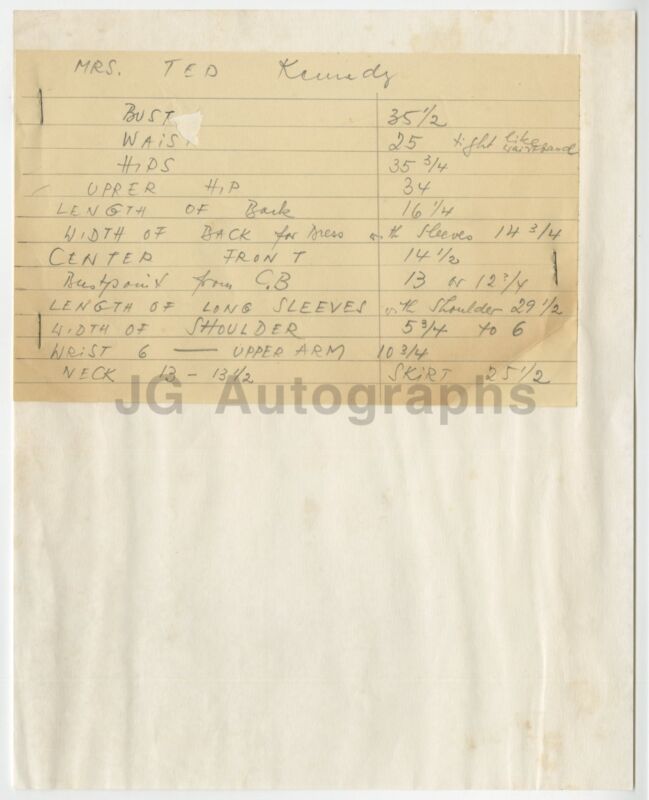 MRS. TED Kennedy
BUST 35 1/2
WAIST 25 tight like waistband
HIPS 35 3/4
UPPER HIP 34
LENGTH OF Back 16 1/4
WIDTH OF BACK for Dress with Sleeves 14 3/4
CENTER FRONT 14 1/2
Bustpoint from C.B 13 or 12 3/4
LENGTH OF LONG SLEEVES with Shoulder 29 1/2
WIDTH OF SHOULDER 5 3/4 to 6
WRIST 6 — UPPER ARM 10 3/4
NECK 13 - 13 1/2 SKIRT 25 1/2
JG Autographs